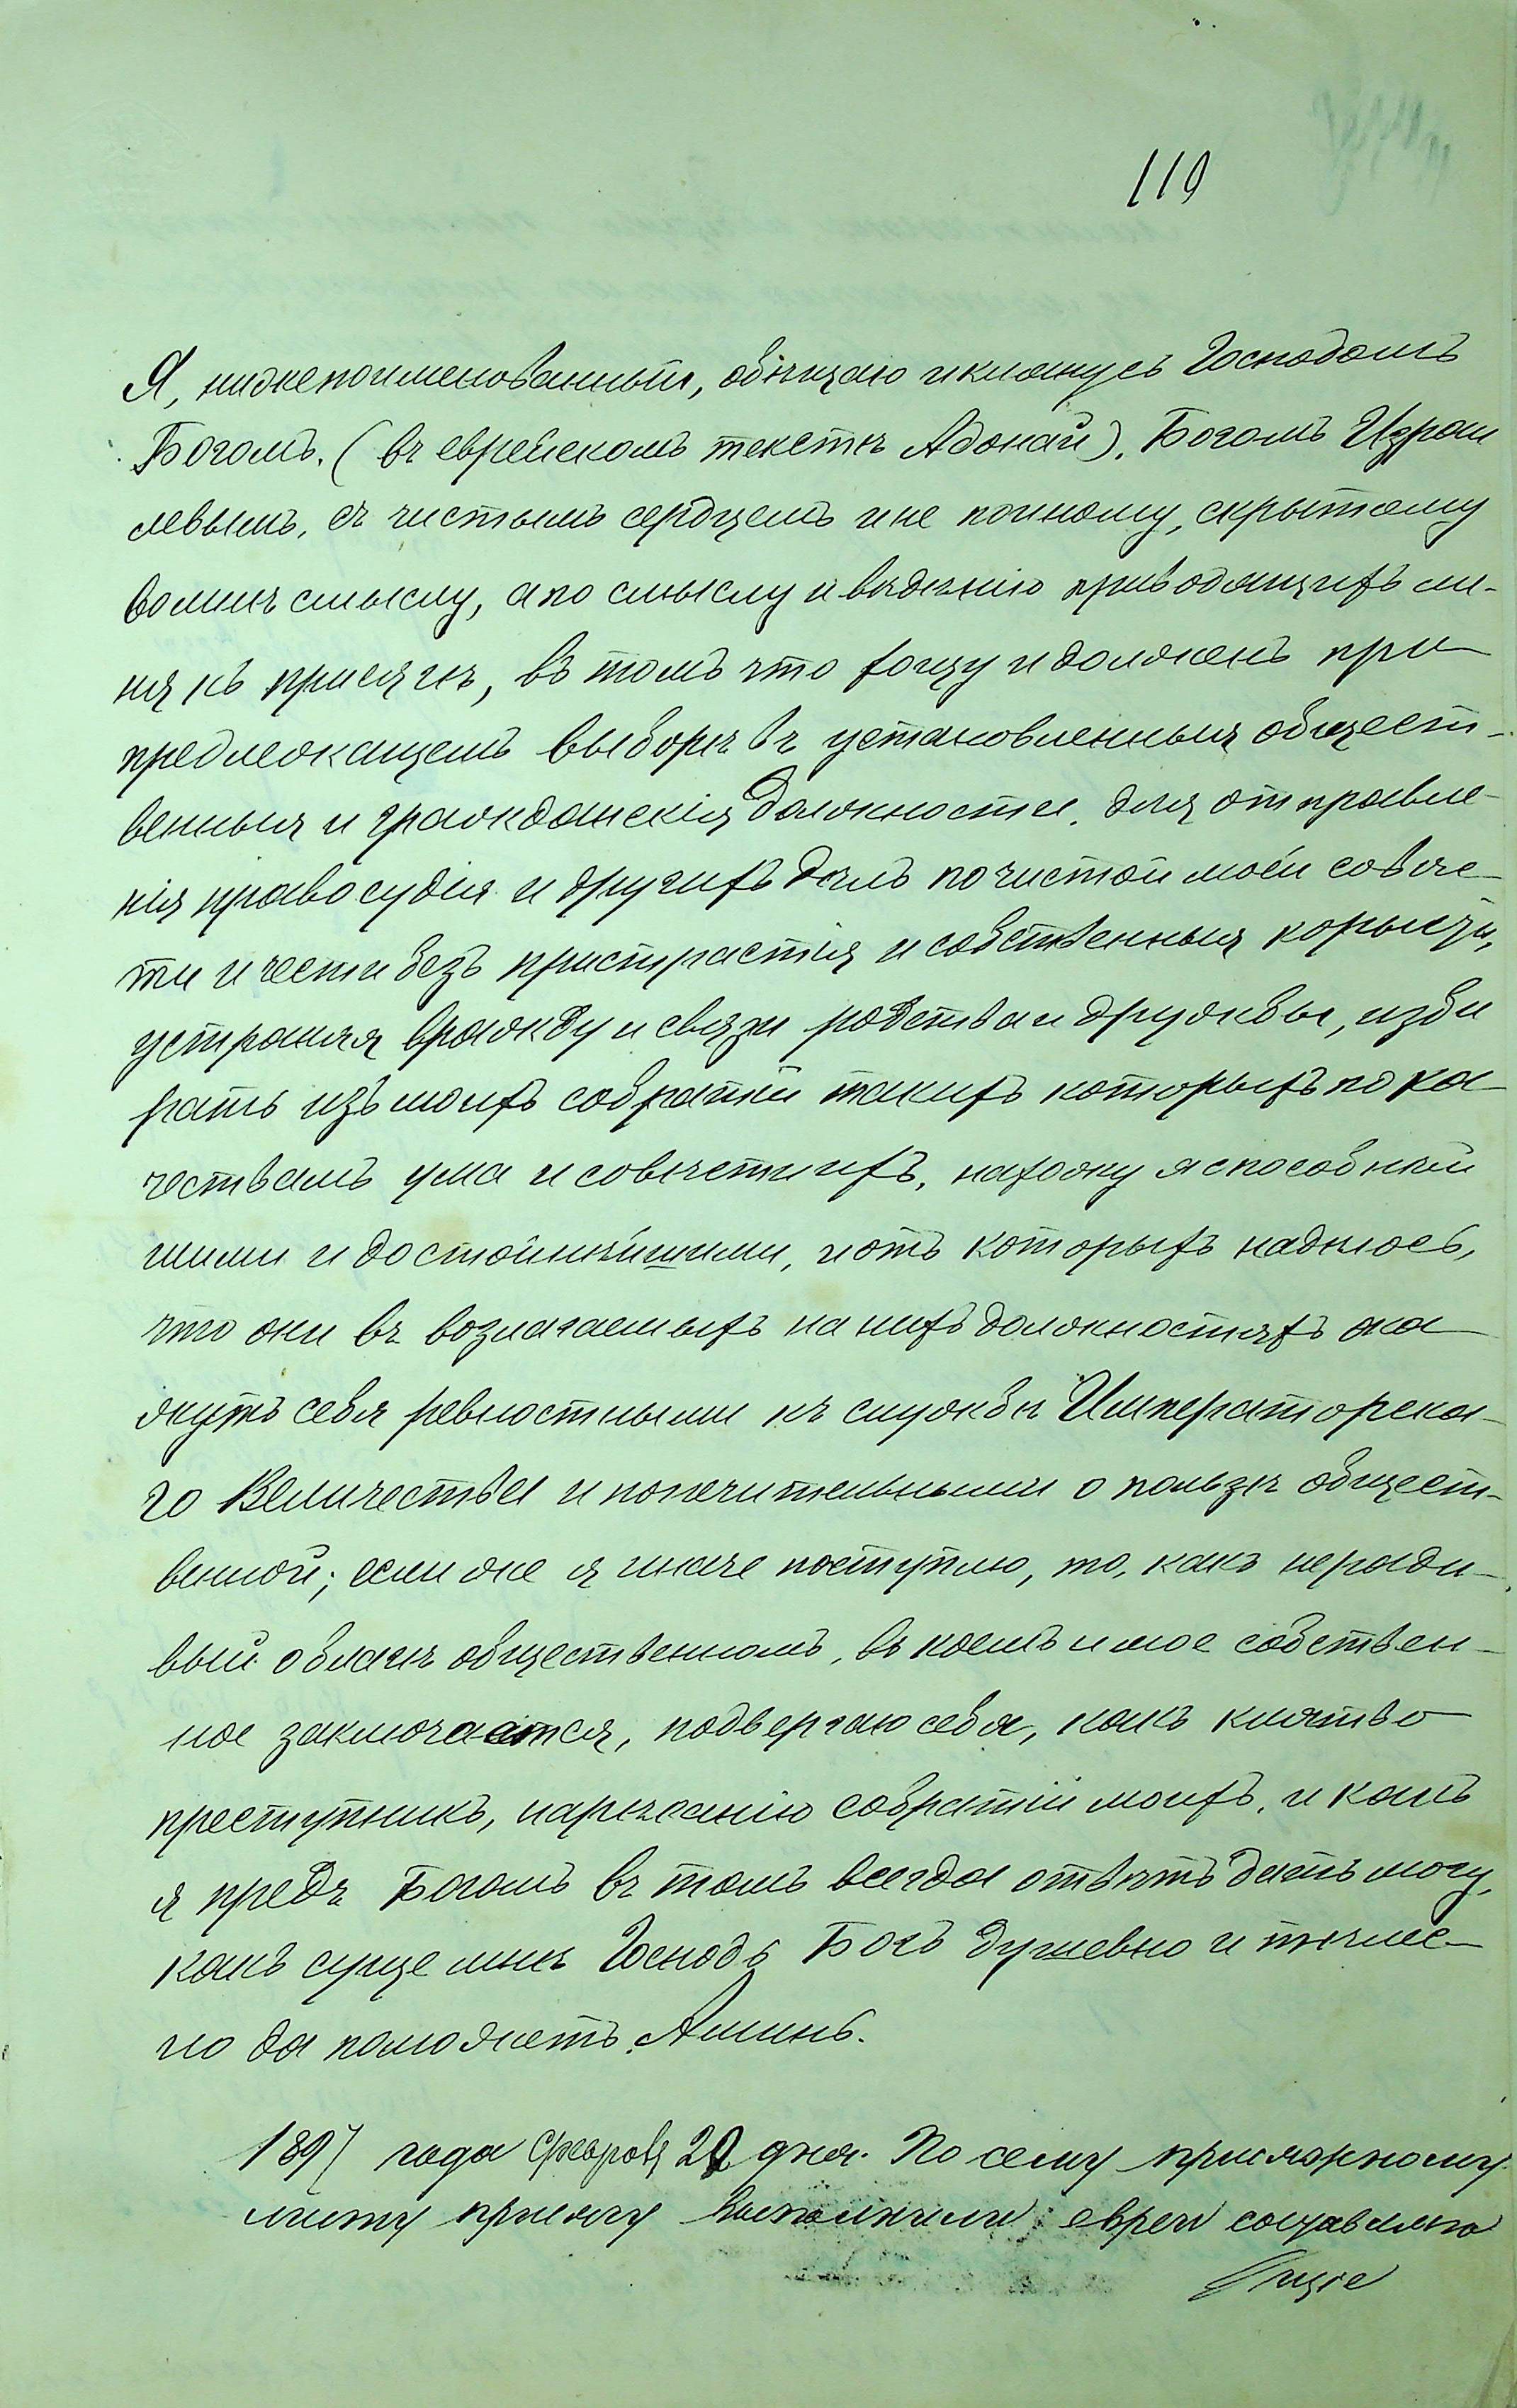 119
Я, нижепоименованный, обѣщаю и клянусь Господомъ
Богомъ. (въ еврейскомъ текстѣ Адонай), Богомъ Израи
левымъ, съ чистымъ сердцемъ и не по иному, скрытому
во мнѣ смыслу, а по смыслу и вѣдѣнію приводящихъ ме-
ня къ присягѣ, въ томъ что хощу и долженъ при
предлежащемъ выборѣ въ установленныя общест-
венныя и гражданскія должности, для отправле-
нія правосудія и другихъ дѣлъ по чистой моей совѣс-
ти и чести безъ пристрастія и собственныя корысти,
устраняя вражду и связи родства и дружбы, изби
рать изъ моихъ собратій такихъ которыхъ по ка-
чествамъ ума и совѣсти ихъ, нахожу я способнѣй
шими и достойнѣйшими, и отъ которыхъ надѣюсь,
что они въ возлагаемыхъ на нихъ должностяхъ ока
жутъ себя ревностными къ службѣ Императорска-
го Величества и попечительными о пользѣ общест-
венной; если же я иначе поступлю, то, какъ неради-
вый о благѣ общественномъ, въ коемъ и мое собствен-
ное заключается, подвергаю себя, какъ клятво
преступникъ, нареканію собратій моихъ, и какъ
я предъ Богомъ въ томъ всегда отвѣтъ дать могу,
какъ суще мнѣ Господь Богъ душевно и тѣлес-
но да поможетъ. Аминь.
1897 года Февраля 22 дня. По сему присяжному
листу присягу выполнили евреи